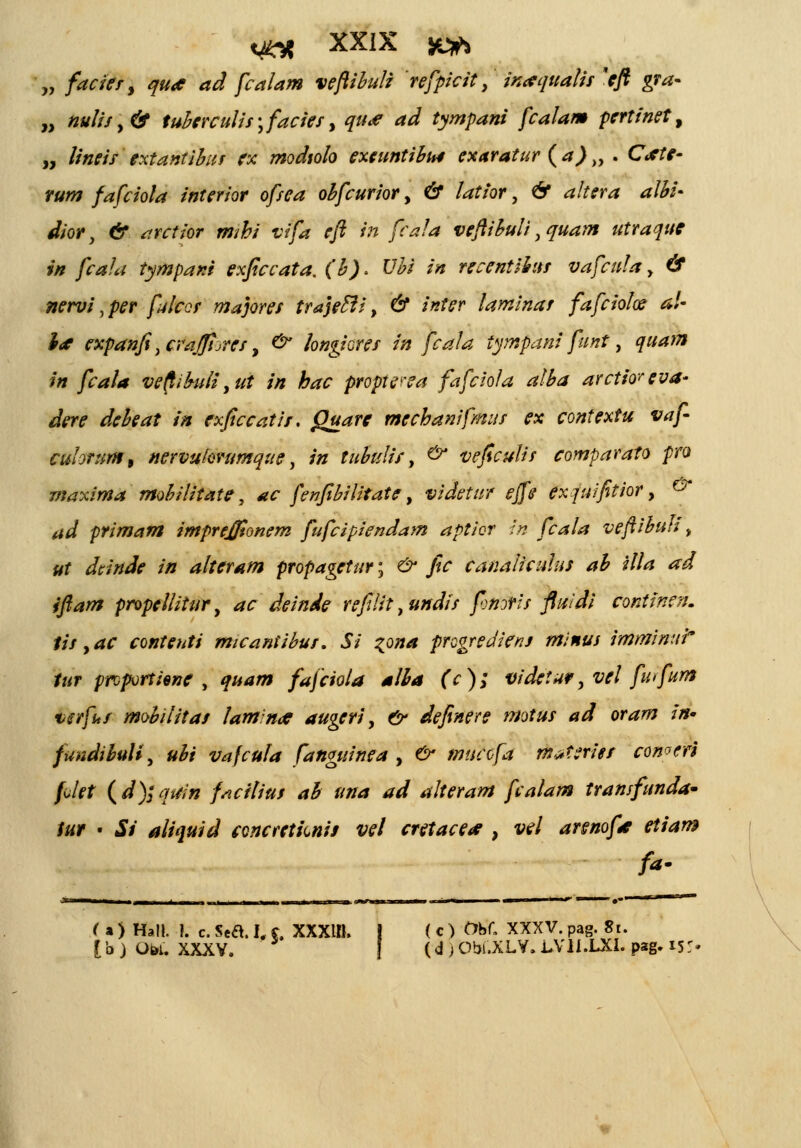 XXIX
„ facies, quæ ad scalam vestibuli respicit, inæqualis est gra-
„ nulis, & tuberculis; facies, quæ ad tympani scalam pertinet,
„ lineis extantibus ex modiolo exeuntibus exaratur (a)„. Cæte-
rum fasciola interior ossea obscurior, & latior, & altera albi-
dior, & arctior mihi visa est in scala vestibuli, quam utraque
in scala tympani exsiccata. (b). Ubi in recentibus vascula, &
nervi, per sulcos majores trajecti, & inter laminas fasciolæ al-
bæ expansi, crassiores, & longiores in scala tympani sunt, quam
in scala vestibuli, ut in hac propterea fasciola alba arctior eva-
dere debeat in exsiccatis. Quare mechanismus ex contextu vas-
culorum, nervulorumque, in tubulis, & vesiculis comparato pro
maxima mobilitate, ac sensibilitate, videtur esse exquisitior, &
ad primam impressionem suscipiendam aptior in scala vestibuli,
ut deinde in alteram propagetur; & sic canaliculus ab illa ad
istam propellitur, ac deinde resilit, undis sonoris fluidi continen-
tis, ac contenti micantibus. Si zona progrediens minus imminui-
tur proportione, quam fasciola alba (c); videtur, vel sursum
versus mobilitas laminæ augeri, & desinere motus ad oram in-
fundibuli, ubi vascula sanguinea, & muccosa materies conqeri
solet (d); quin facilius ab una ad alteram scalam transfunda-
tur. Si aliquid concretionis vel cretaceæ, vel arenosæ etiam
fa-
(a) Hall. l. c. Sect. I, §. XXXIII.
(b) Obs. XXXV.
(c) Obs. XXXV. pag. 81.
(d) Obs. XLV. LVII. LXI. pag.